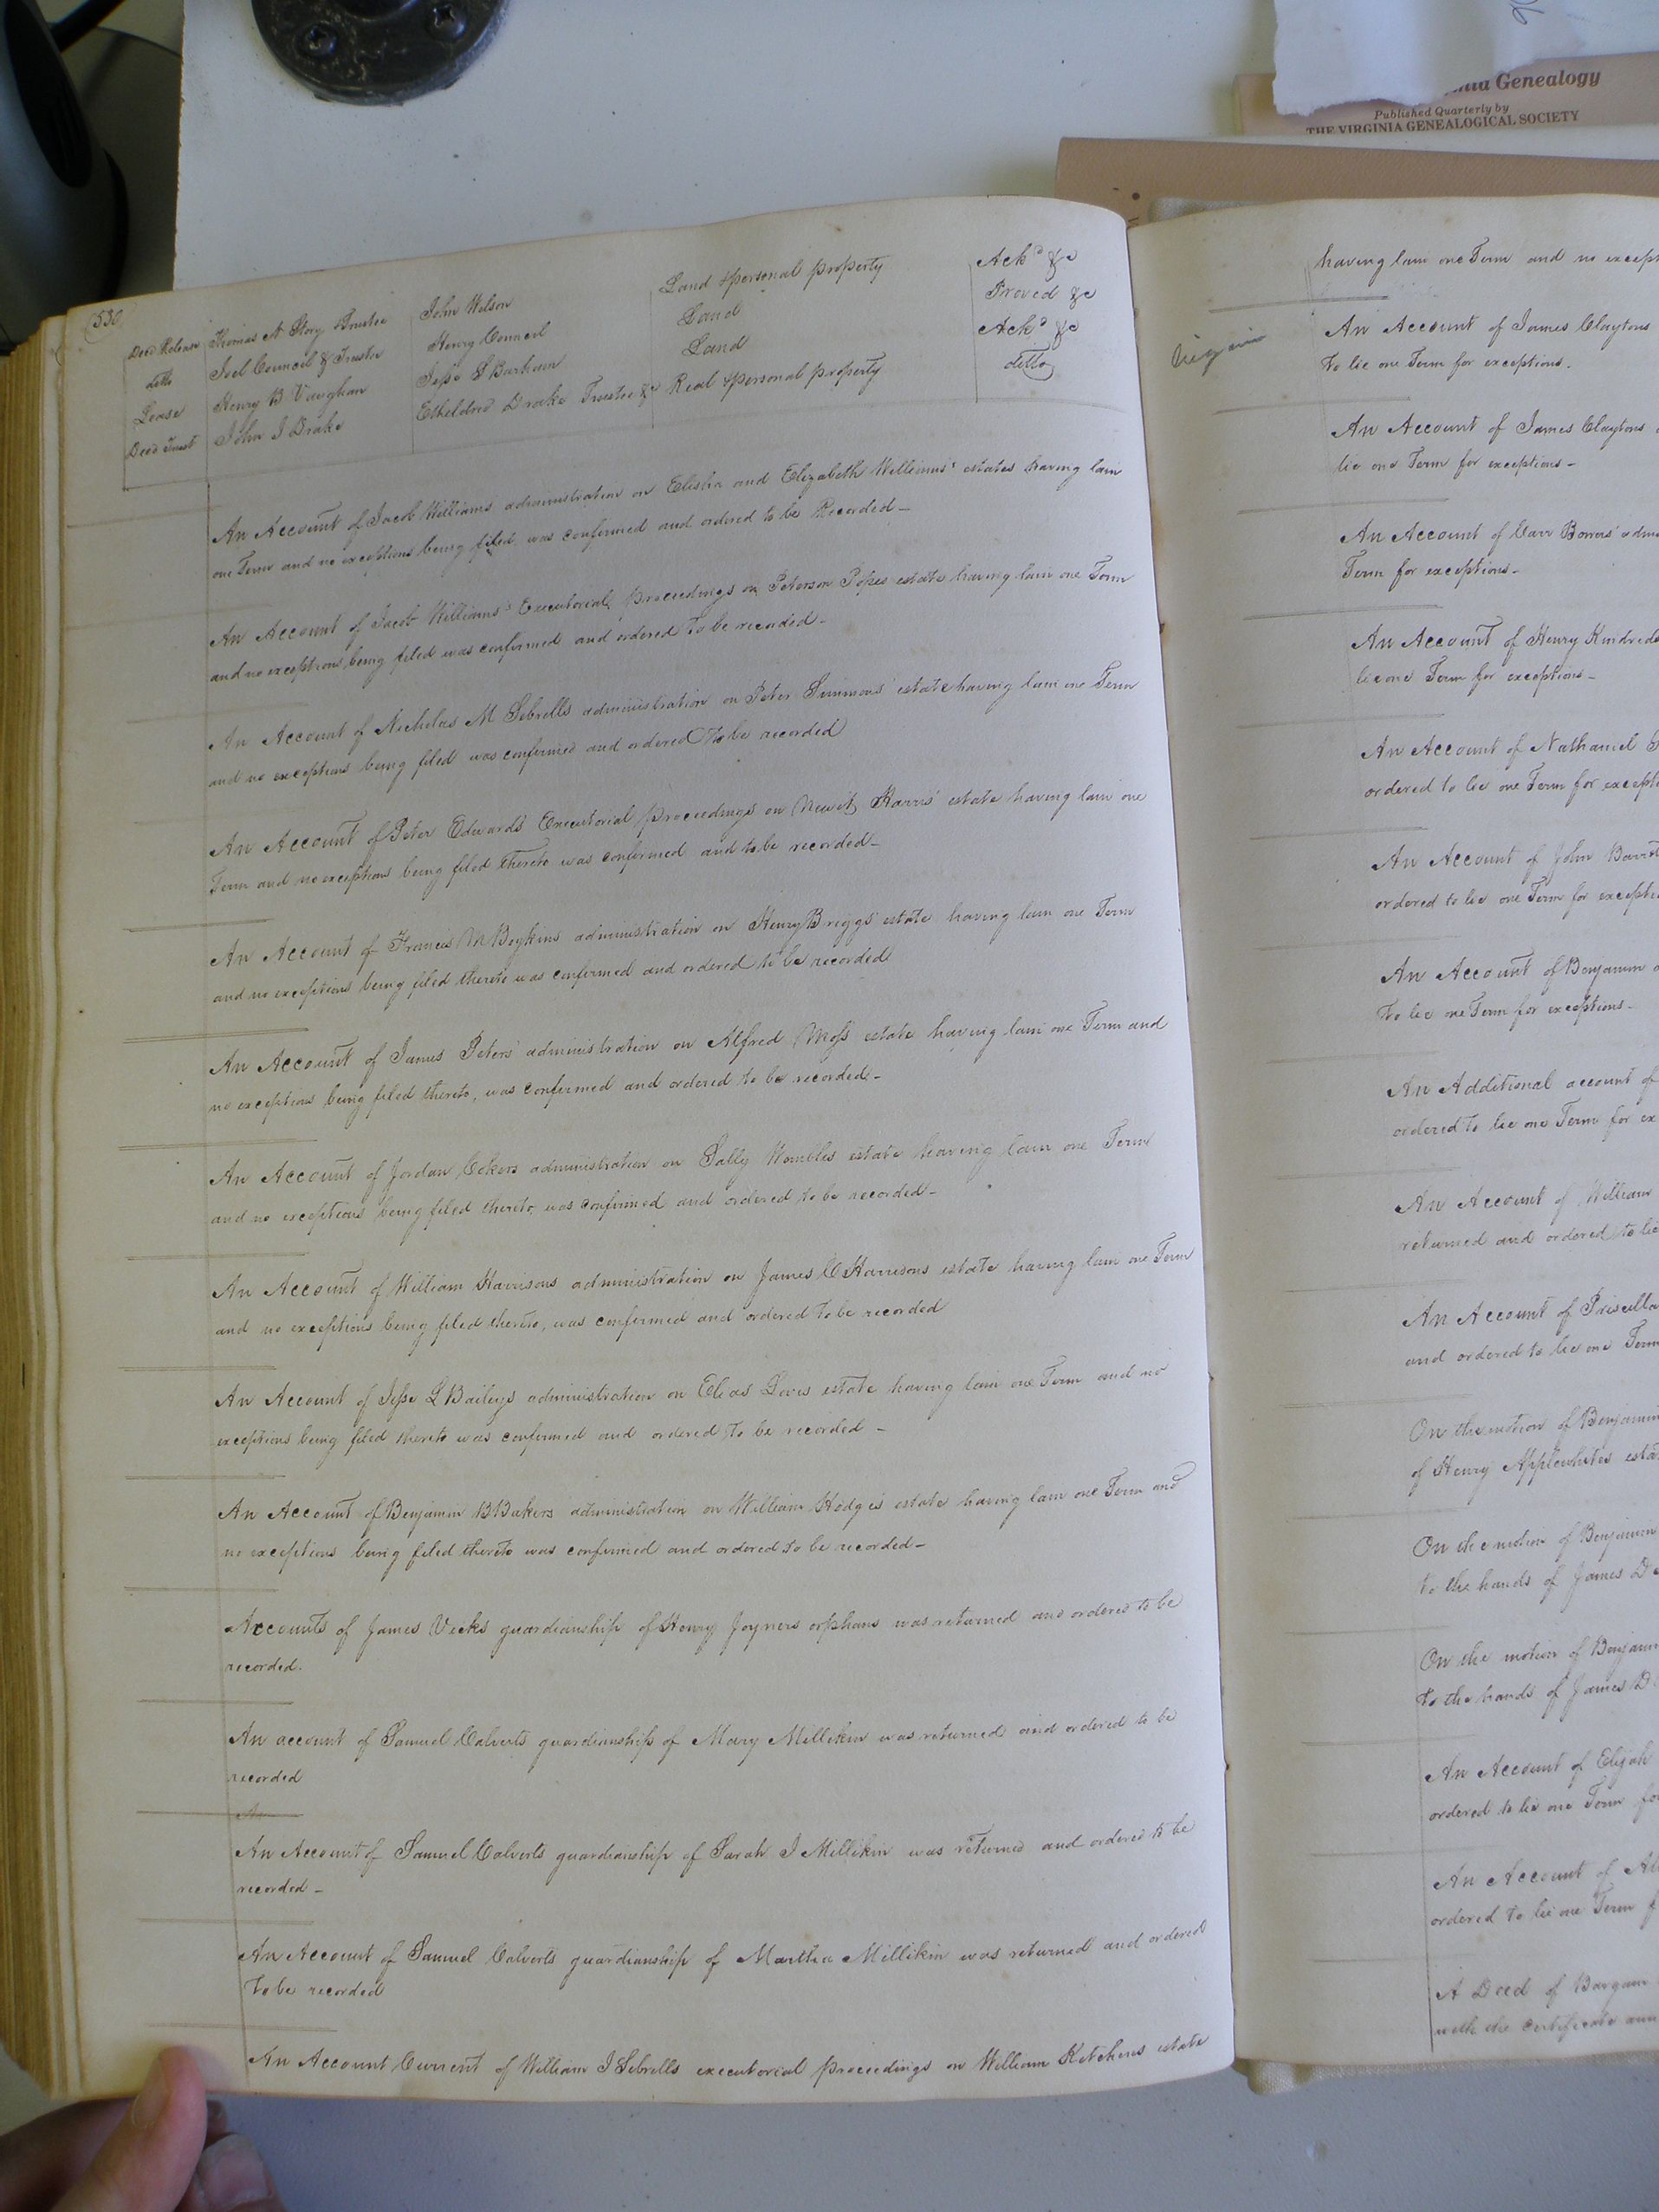 Genealogy
Published Quarterly by
THE VIRGINIA GENEALOGICAL SOCIETY
(530
Deed Release Thomas A Story Trustee John Wilson Land & personal property Ackd &c
ditto Joel Council & Trustee Henry Council Land Proved &c
Lease Henry B Vaughan Jesse S Barham Land Ackd &c
Deed Trust John J Drake Etheldred Drake Trustee &c Real & personal property ditto
An Account of Jacob Williams administration on Elisha and Elizabeth Williams' estates having lain
one Term and no exceptions being filed, was confirmed and ordered to be Recorded -
An Account of Jacob Williams's Executorial proceedings on Peterson Popes estate having lain one Term
and no exceptions being filed was confirmed and ordered to be recorded -
An Account of Nicholas M Sebrells administration on Peter Simmons' estate having lain one Term
and no exceptions being filed was confirmed and ordered to be recorded
An Account of Peter Edwards' Executorial proceedings on Newit Harris' estate having lain one
Term and no exceptions being filed thereto was confirmed and to be recorded -
An Account of Francis M Boykins administration on Henry Briggs' estate having lain one Term
and no exceptions being filed thereto was confirmed and ordered to be recorded
An Account of James Peters' administration on Alfred Moss estate having lain one Term and
no exceptions being filed thereto, was confirmed and ordered to be recorded -
An Account of Jordan Cokers administration on Sally Wombles estate having lain one Term
and no exceptions being filed thereto, was confirmed and ordered to be recorded -
An Account of William Harrisons administration on James C Harrisons estate having lain one Term
and no exceptions being filed thereto, was confirmed and ordered to be recorded
An Account of Jesse L Baileys administration on Elias estate having lain one Term and no
exceptions being filed thereto was confirmed and ordered to be recorded -
An Account of Benjamin B Bakers administration on William Hodges estate having lain one Term and
no exceptions being filed thereto was confirmed and ordered to be recorded -
Accounts of James Vicks guardianship of Henry Joyners orphans was returned and ordered to be
recorded.
An account of Samuel Calverts guardianship of Mary Millikin was returned and ordered to be
recorded
An
An Account of Samuel Calverts guardianship of Sarah J Millikin was returned and ordered to be
recorded -
An Account of Samuel Calverts guardianship of Martha Millikin was returned and ordered
to be recorded
An Account Current of William J Sebrells executorial proceedings on William Kitchens estate
having lain one Term and no
An Account of James Claytons
to lie one Term for exceptions.
An Account of James Claytons
lie one Term for exceptions -
An Account of Carr Bowers'
Term for exceptions -
An Account of Henry
lie one Term for exceptions -
An Account of Nathaniel
ordered to lie one Term for
An Account of John
ordered to lie one Term for
An Account of Benjamin
to lie one Term for exceptions -
An Additional account of
ordered to lie one Term for
An Account of William
returned and ordered to lie
An Account of Priscilla
and ordered to lie one Term
On the motion of Benjamin
of Henry Applewhites
On the motion of Benjamin
to the hands of James
On the motion of
to the hands of James
An Account of Elijah
ordered to lie one Term
An Account of
ordered to lie one Term
A Deed of Bargain
with the certificate